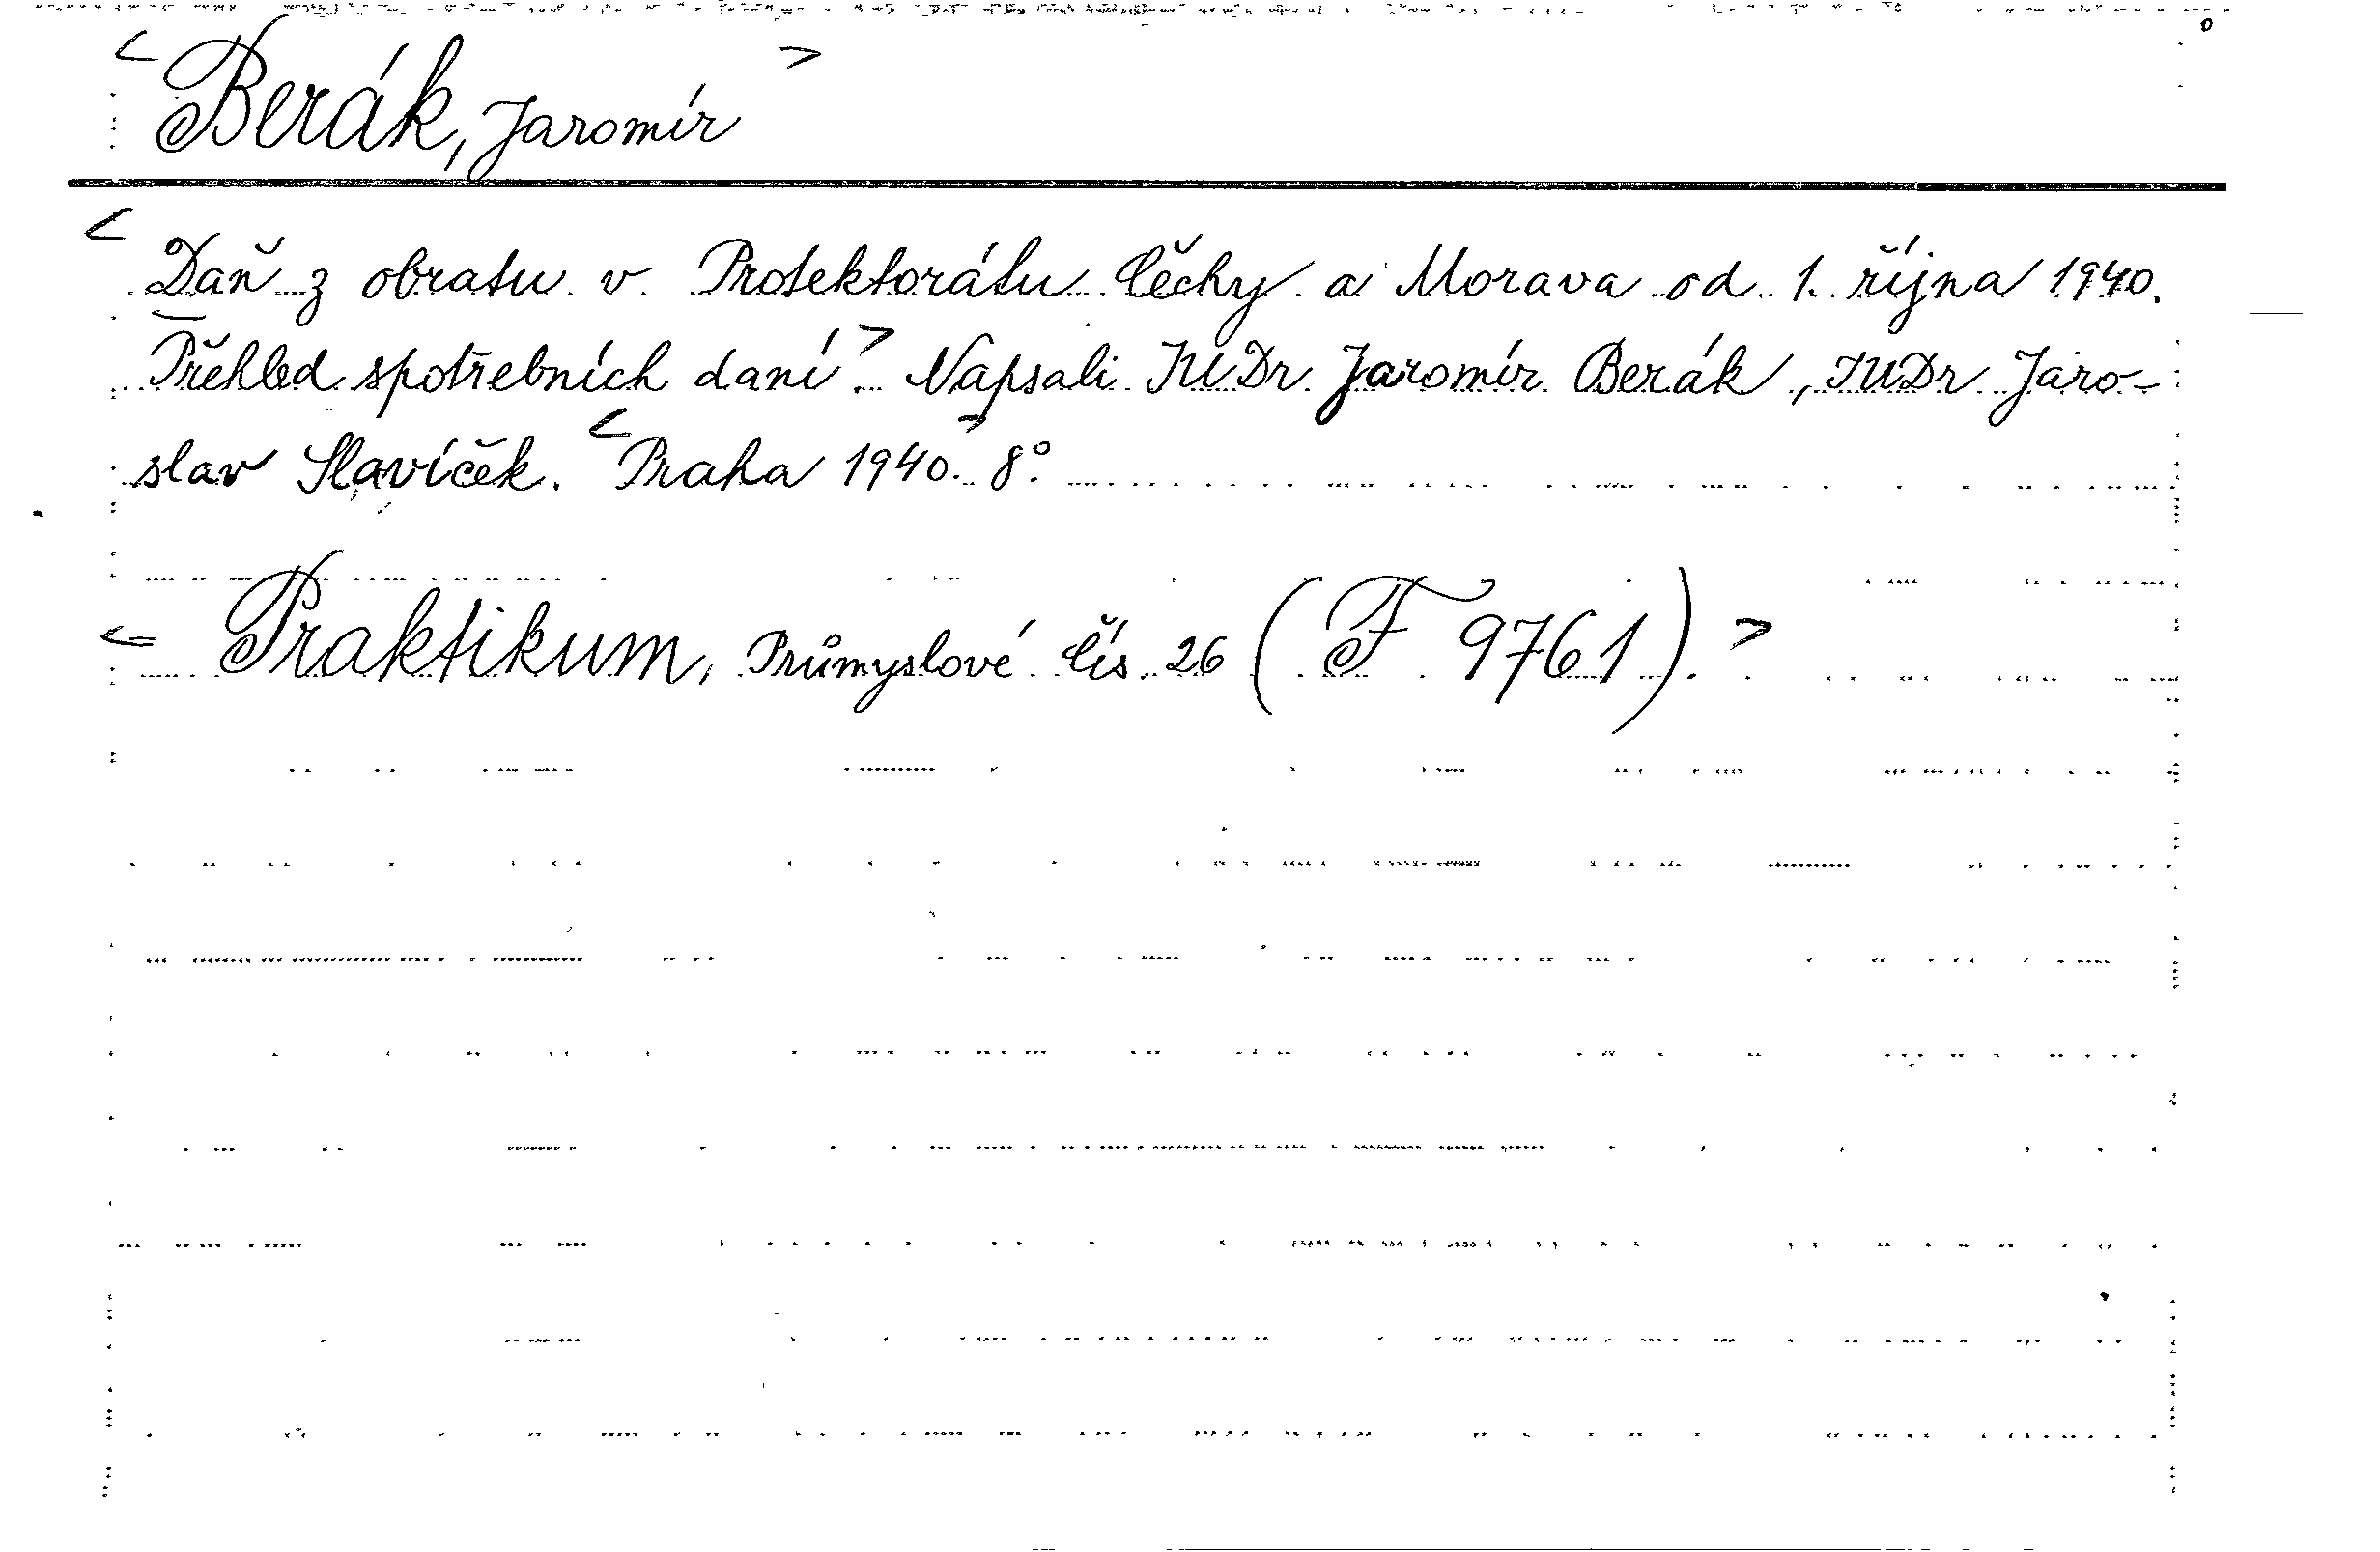 < Berák, Jaromír >
< Daň z obratu v Protektorátu Čěchy a Morava od 1. října 1940.
Přehled spotřebních daní >. Napsali JUDr. Jaromír Berák, JUDr Jaro-
slav Slavíček. < Praha 1940. > 8°
<= Praktikum, Průmyslové čís. 26 (F 9761). >